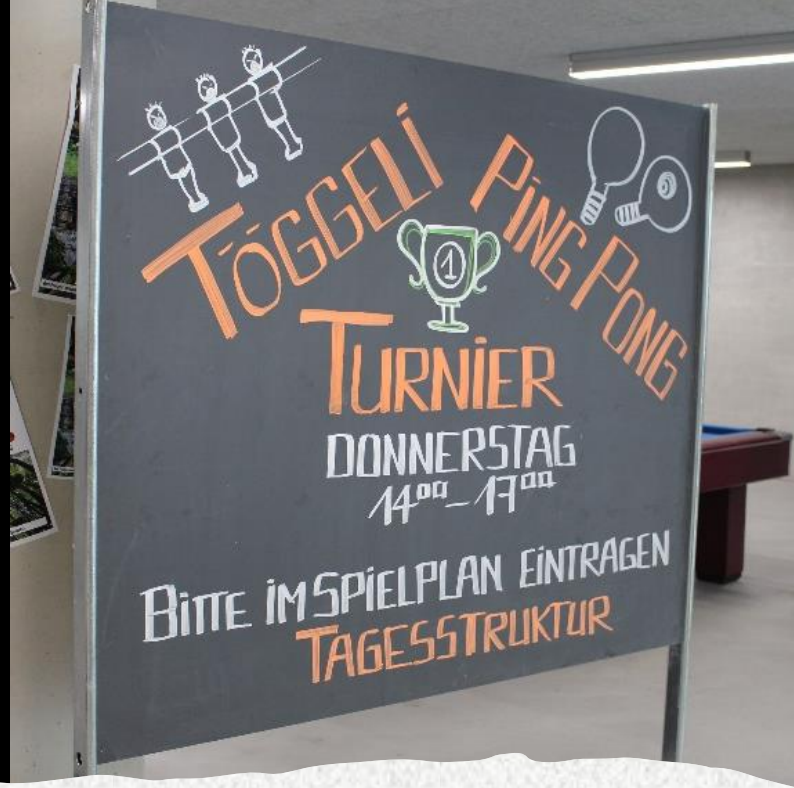 TÖGGELI PING PONG
1
TURNIER
DONNERSTAG
14⁰⁰-17⁰⁰
BITTE IM SPIELPLAN EINTRAGEN
TAGESSTRUKTUR